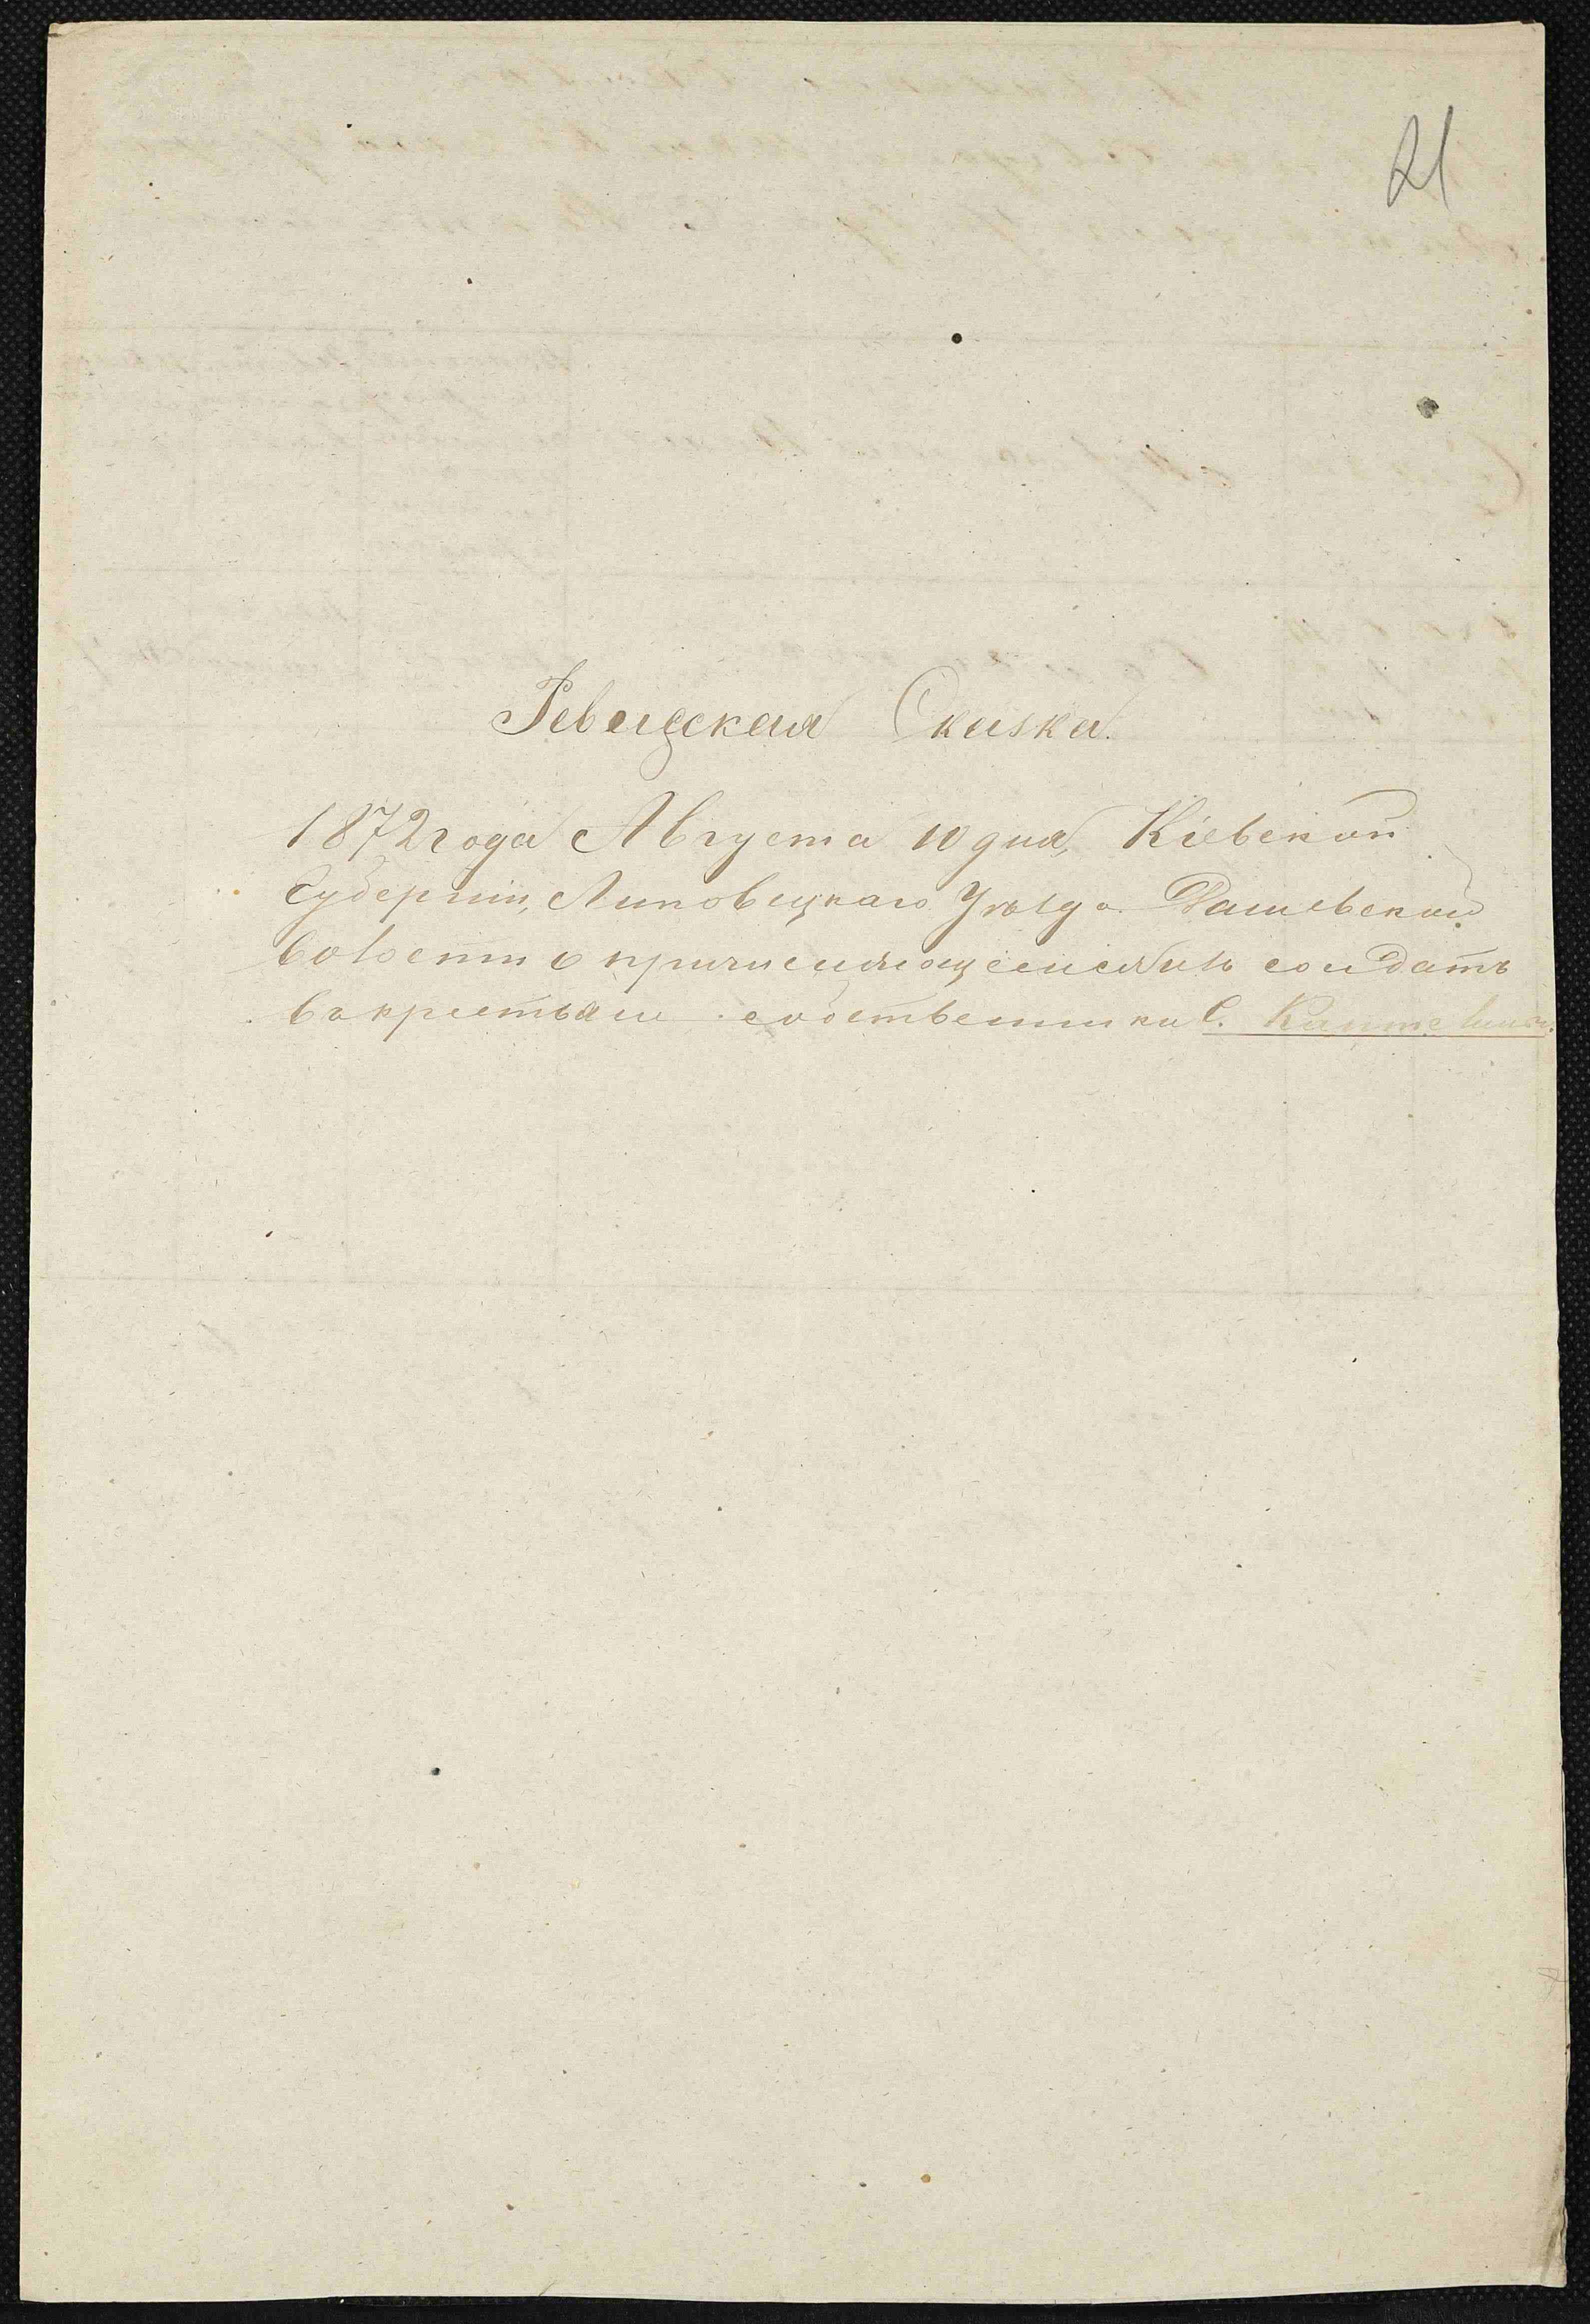 21
Ревизская Сказка.
1872 года Августа 10 дня, Кіевской
Губерніи, Липовецкаго Уѣзда Дашевской
волости о причисляющемся изъ солдатъ
въ крестьяне собственники С.